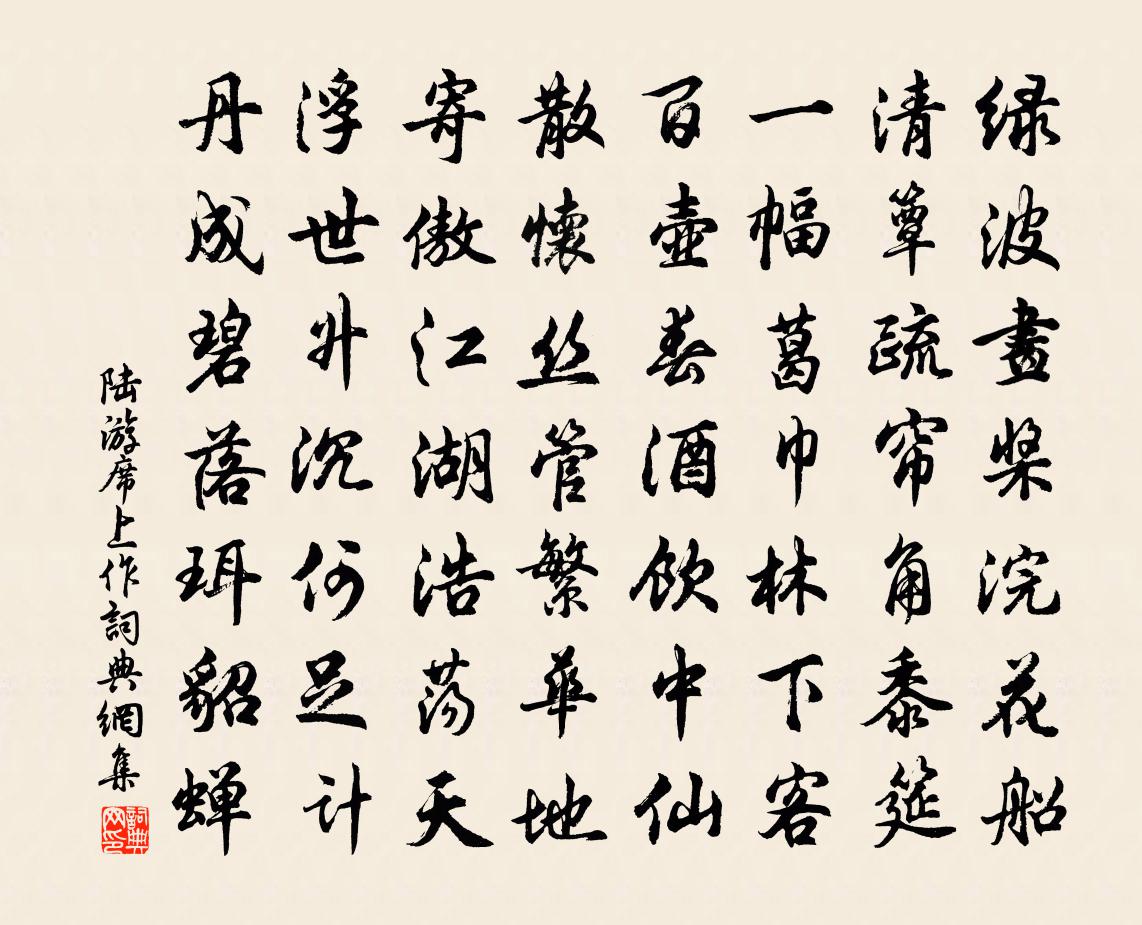 绿波畫桨浣花船
清簟疏帘角黍筵
一幅葛巾林下客
百壶春酒飲中仙
散懷丝管繁華地
寄傲江湖浩荡天
浮世升沉何足计
丹成碧落珥貂蝉
陆游席上作詞典網集
詞典网印